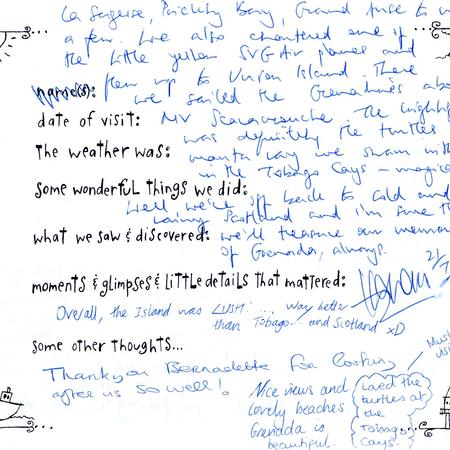 La Sagesse, Prickly Bay, Grand Anse to
a few. We also chartered one of
the little yellow SVG Air planes and
name(s): flew up to Union Island. There
we sailed the Grenadines
date of visit: MV Scaramouche. The
was definitely the turtles
The weather was: manta ray we swam with
in the Tobago Cays - magic
some wonderful things we did: off back to cold and
Well we're
rainy Scotland and I'm sure
what we saw & discovered: we'll treasure our
of Grenada, always.
moments & glimpses & little details that mattered:
Overall, the Island was LUSH! ... way better
than Tobago... and Scotland xD
some other thoughts...
Thankyou Bernadette for looking
after us so well!
Nice views and
lovely beaches
Grenada is
beautiful.
Loved the
turtles at
the
Tobago
Cays.